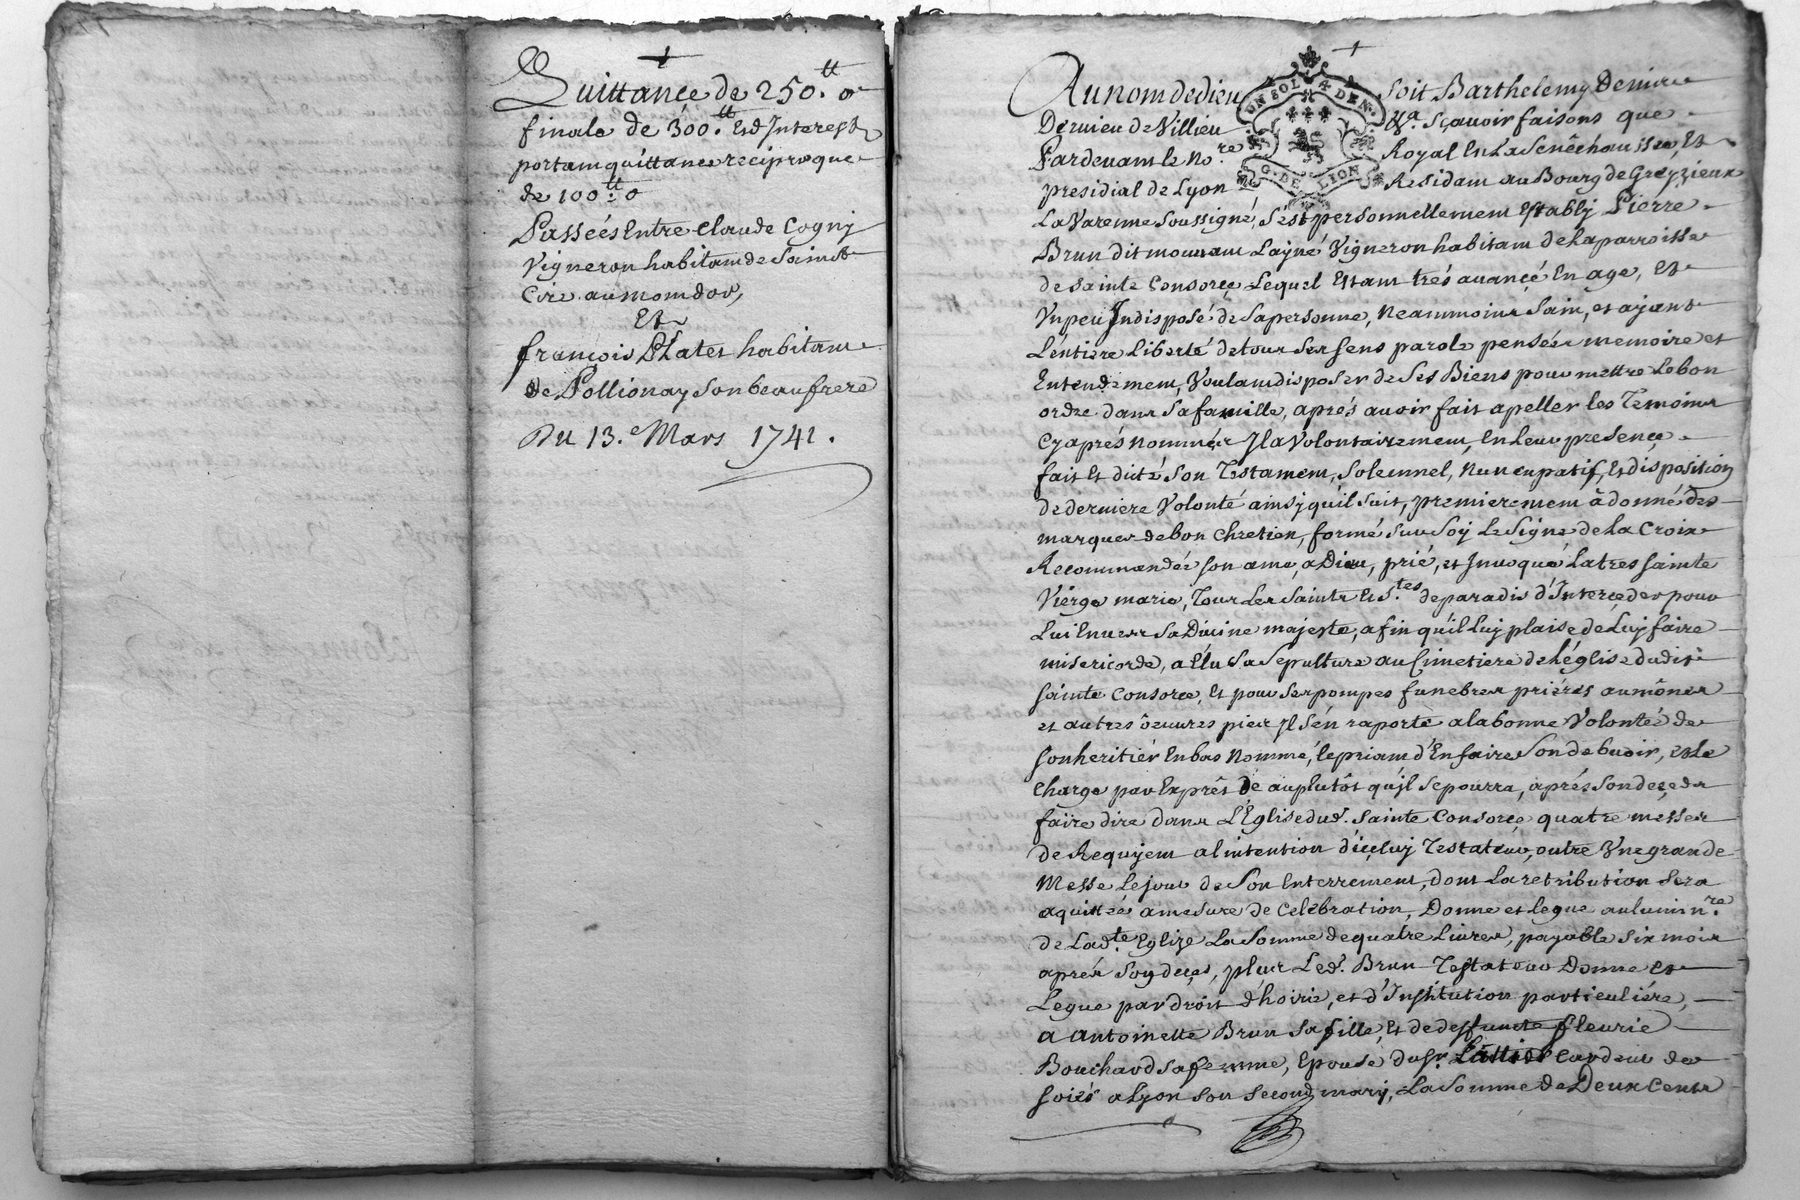 Quittance de 250.tt o
finale de 300.tt Et d'Interest
portant quittance reciproque
de 100.tt o
Passées Entre Claude Cogny
Vigneron habitant de Saint
Cire au mont d'or,
Et
françois Plates habitant
de Pollionay Son beau frere
Du 13.e Mars 1741.
UN SOL 4 DEN.
G. DE LION
Au nom de dieu Soit Barthelemy
Deruieu de Villieu Sçavoir faisons que
Pardevant le No.re Royal En La Senêchaussée, Et
presidial de Lyon Residant au Bourg de Greyzieux
La Varenne Soussigné, S'est personnellement Establÿ Pierre
Brun dit Layné Vigneron habitant de la parroisse
de Sainte Consorçe Lequel Estant trés avancé En age, Et
Un peu Indisposé de Sa personne, Neammoins Sain, et ajant
L'éntiere Liberté de tous Ses Sens parole pensées memoire et
Entendement, Voulant disposer de Ses Biens pour mettre Le bon
ordre dans Sa famille, aprés avoir fait apeller les Temoins
Cy aprés nommés Il a Volontairement, En Leur presençe
fait Et dicté Son Testament, Solemnel, Nuncupatif, Et disposition
de derniere Volonté ainsy qu'il Suit, premierement à donné des
marques de bon Chretien, formé Sur Soÿ Le Signe de La Croix
Recommandéé son ame, a Dieu, prié, et Invoqué La tres Sainte
Viérge marie, Tous Les Saints Et S.tes de paradis d'Interçeder pour
Lui Envers Sa Divine majesté, afin qu'il Luy plaise de Luy faire
misericorde, a Élu Sa Sepulture au Cimetiere de L'églisé dudit
Sainte Consorce, Et pour Ses pompes funebres priérés aumônes
et autres ôeuvres pies Il S'én raporte a la bonne Volonté de
Son heritiér En bas Nommé, le priant d'En faire Son debvoir, et le
Charge par Exprés De au plutôt qu'jl Se pourra, aprés Son deçeds
faire dire dans L'Église dud. Sainte Consorçe quatre messes
de Requjem a l'intention d'içeluy Testateur, outre Une grande
Messe Le jour de Son Enterrement, dont La retribution Sera
aquittée a mesure de Celebration, Donne et Legue au luminre
de Lad.te Eglize La Somme de quatre Livres, payable Six mois
aprés Son deçes, plus Led. Brun Testateur Donne et
Legue par droit d'hoirie, et d'Institution particuliére,
a Antoinette Brun Sa fille, Et de deffuncte fleurie
Bouchard Sa femme, Epouse du Sr. Cardeur de
Soiés a Lyon Son Second mary, La Somme de Deux Cents